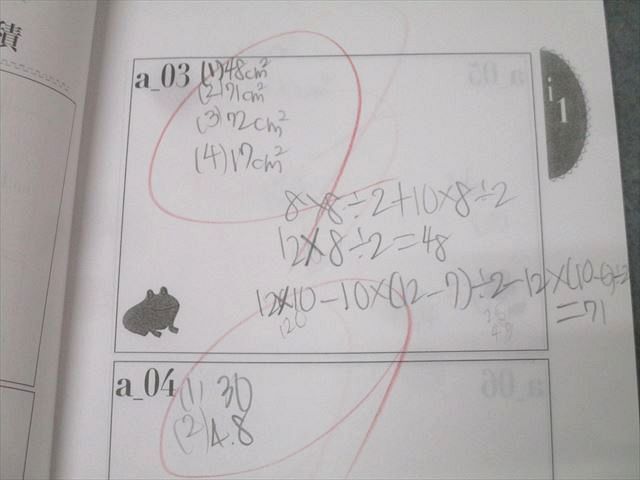 積
a_03 (1)48cm²
(2)71cm²
(3)72cm²
(4)17cm²
i
1
8×8÷2+10×8÷2
12×8÷2=48
12×10-10×(12-7)÷2-12×(10-6)÷2
=71
120
a_04 (1) 30
(2)4.8